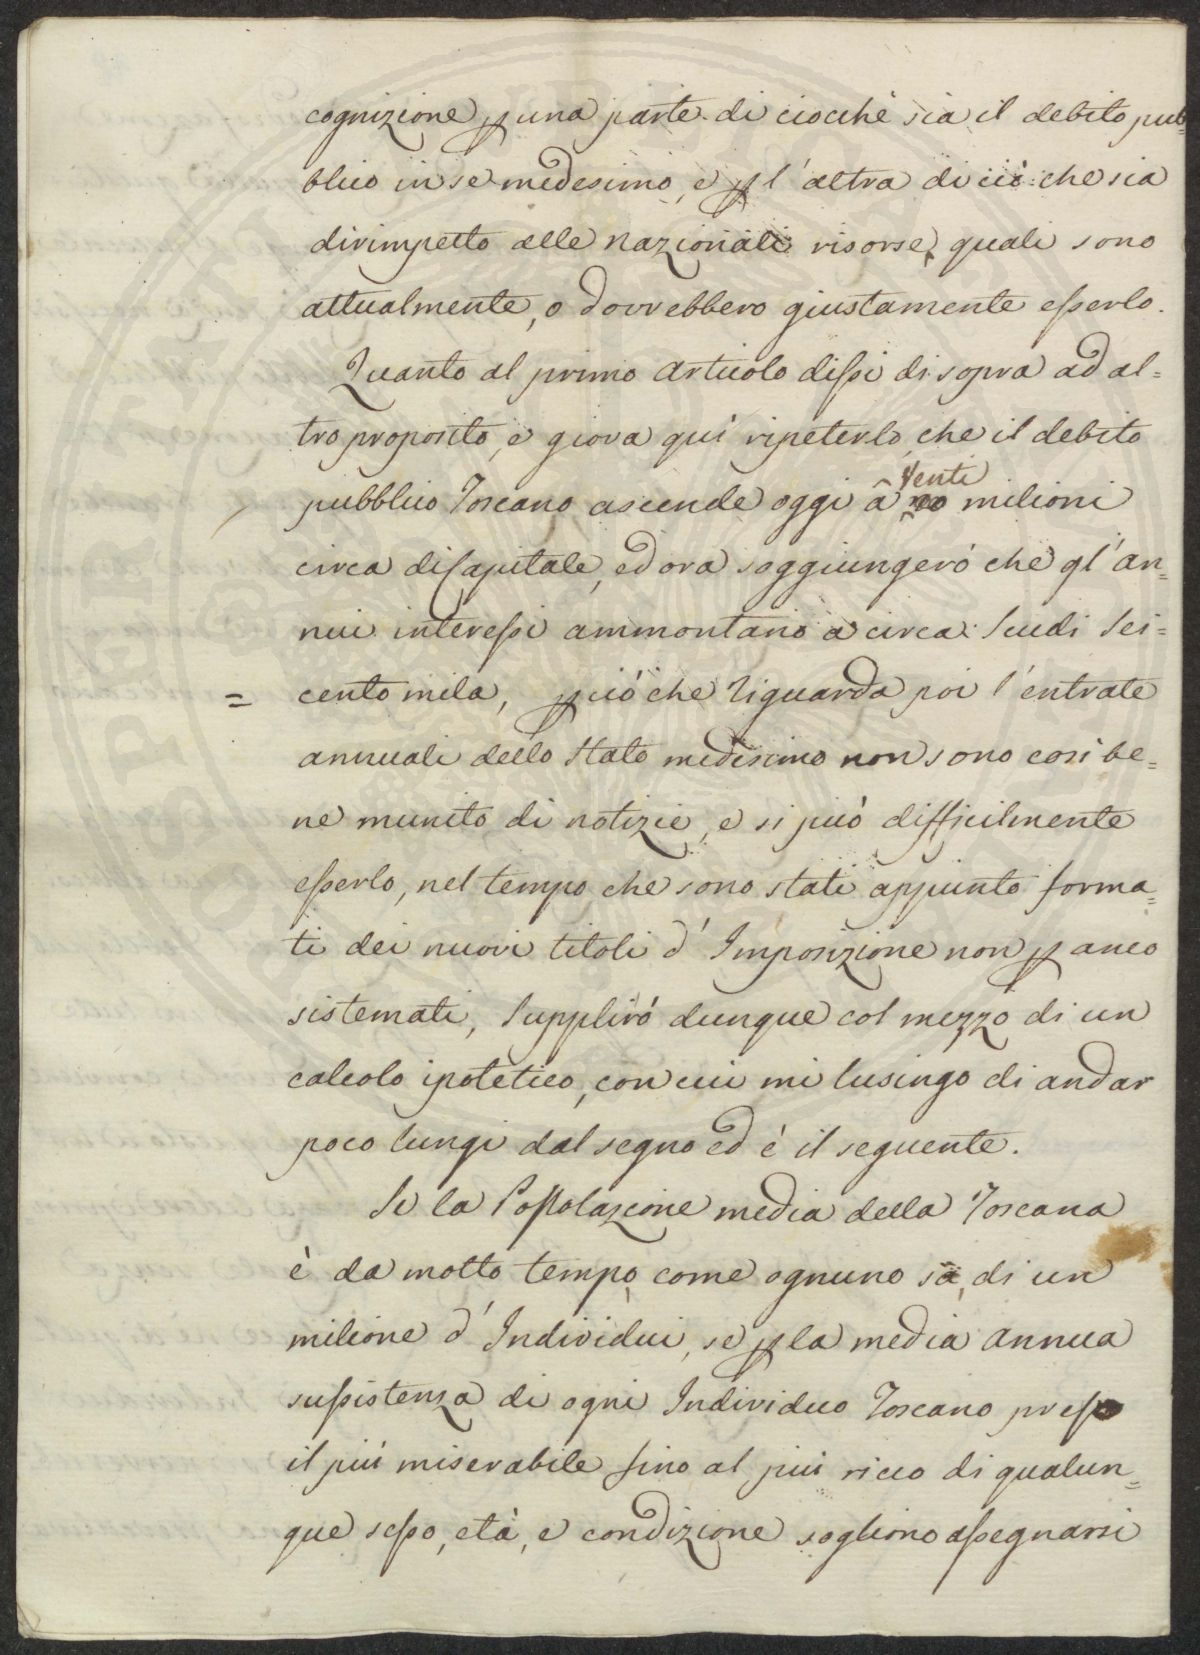 cognizione ꝑ una parte di ciocchè sia il debito pub=
blico in se medesimo, e ꝑ l'altra di ciò che sia
dirimpetto alle nazionali risorse, quali sono
attualmente, o dovrebbero giustamente esserlo.
Quanto al primo articolo dissi di sopra ad al=
tro proposito, e giova quì ripeterlo, che il debito
venti
pubblico Toscano ascende oggi a milioni
circa di Capitale, ed ora soggiungerò che gl'an=
nui interessi ammontano a circa Scudi Sei=
= cento mila, ꝑ ciò che riguarda poi l'entrate
annuali dello Stato medesimo non sono così be=
ne munito di notizie, e si può difficilmente
esserlo, nel tempo che sono stati appunto forma=
ti dei nuovi titoli d'Imposizione non ꝑ anco
sistemati, Supplirò dunque col mezzo di un
calcolo ipotetico, con cui mi lusingo di andar
poco lungi dal segno ed è il seguente.
Se la Popolazione media della Toscana
è da molto tempo, come ognuno sà, di un
milione d'Individui, se ꝑ la media annua
sussistenza di ogni Individuo Toscano preso
il più miserabile fino al più ricco di qualun=
que sesso, età, e condizione sogliono assegnarsi